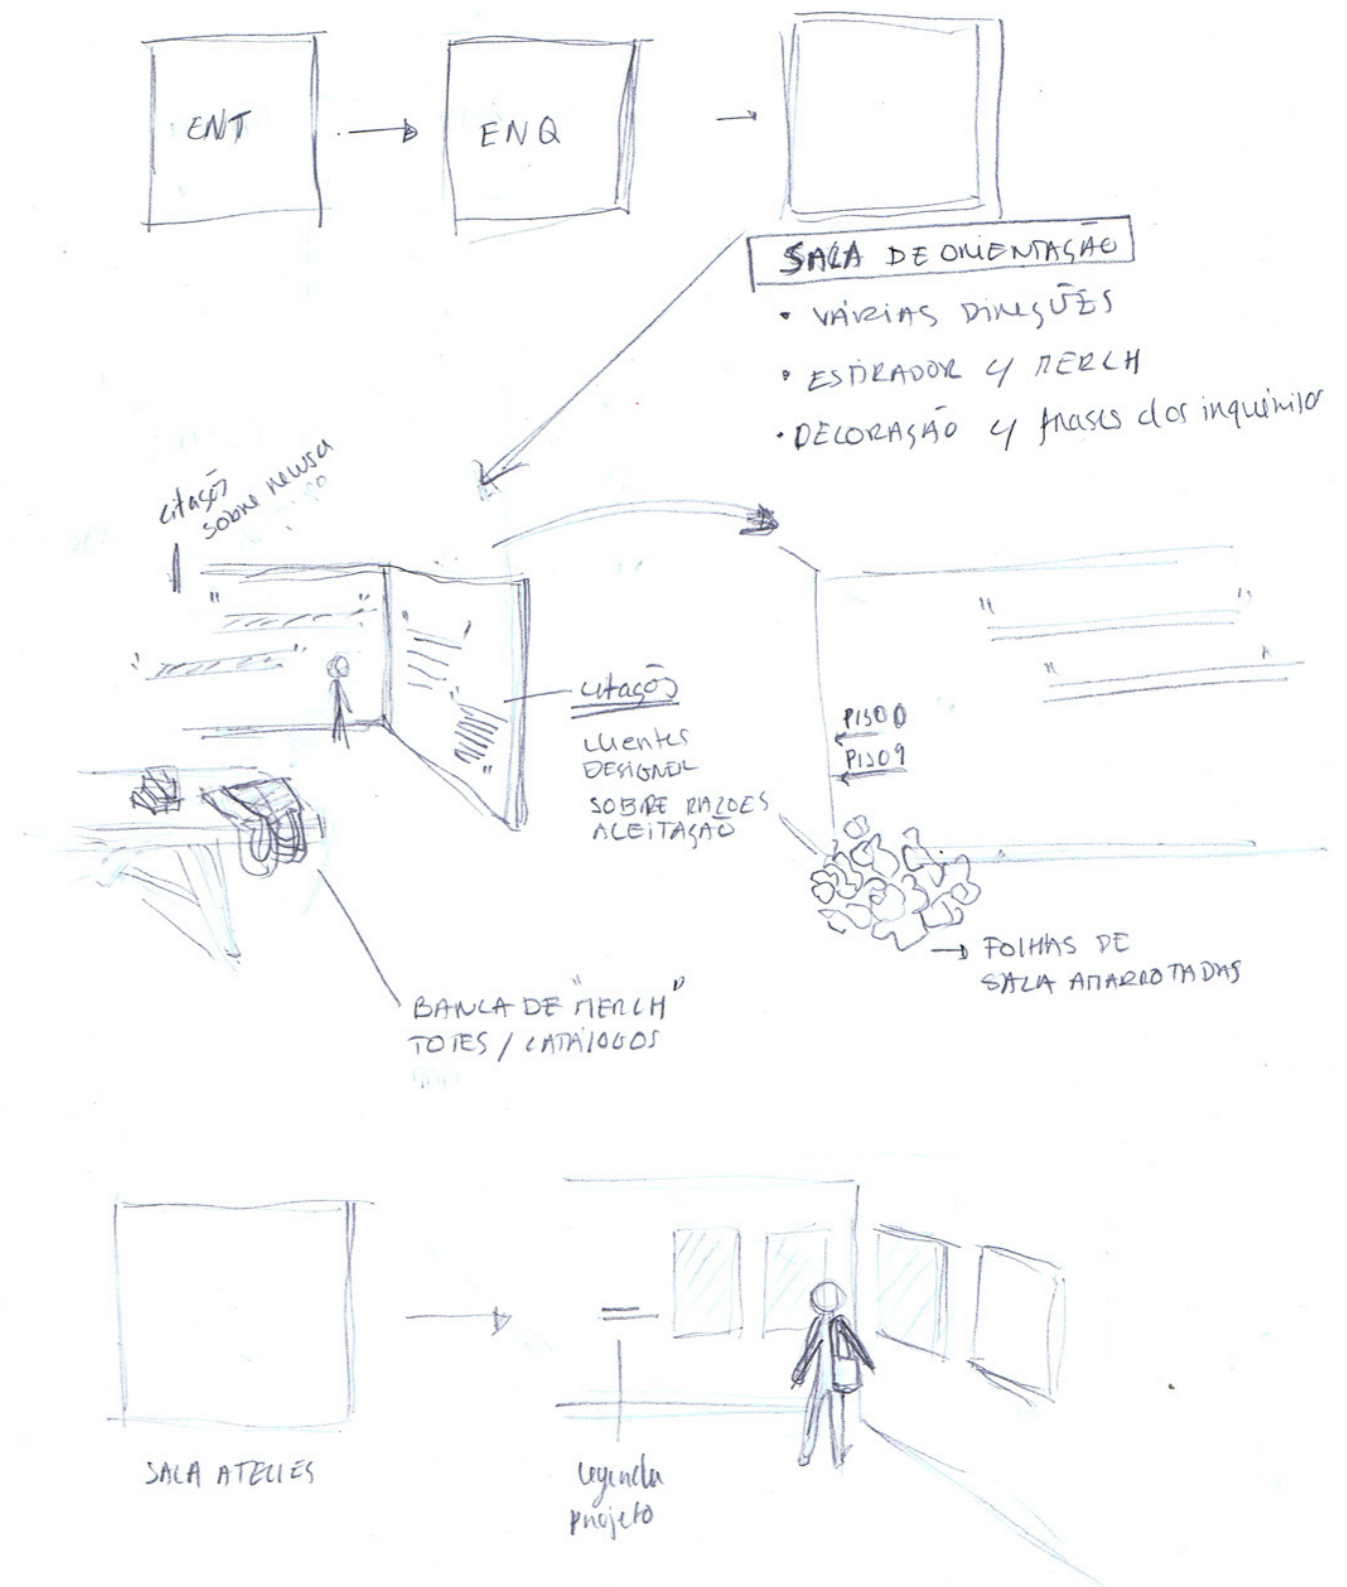 ENT
ENQ
SALA DE ORIENTAÇÃO
• VÁRIAS DIREÇÕES
• ESTIRADOR C/ MERCH
• DECORAÇÃO C/ frases dos inquéritos
citaçõs
sobre recusa
" "
" "
citaçõs
clientes
DESIGNER
SOBRE RAZOES
ACEITAÇÃO
PISO 0
PISO 1
FOLHAS DE
SALA AMARROTADAS
BANCA DE "MERCH"
TOTES / CATÁLOGOS
SALA ATELIES
legenda
projeto